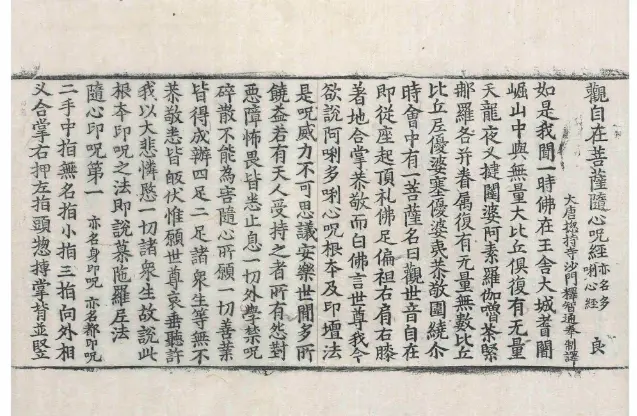 觀自在菩薩隨心呪經 亦名多唎心經 良
大唐揔持寺沙門釋智通奉 制譯
如是我聞一時佛在王舍大城耆闍
崛山中與無量大比丘俱復有無量
天龍夜叉揵闥婆阿素羅伽嚕荼緊
那羅各并眷属復有無量無數比丘
比丘尼優婆塞優婆夷恭敬圍繞尒
時會中有一菩薩名曰觀世音自在
即從座起頂礼佛足偏袒右肩右膝
著地合掌恭敬而白佛言世尊我今
欲說阿唎多唎心呪根本及印壇法
是呪威力不可思議安樂世間多所
饒益若有天人受持之者所有怨對
惡障怖畏皆悉止息一切外學禁呪
碎散不能為害隨心所願一切善業
皆得成辦四足二足諸衆生等無不
恭敬悉皆皈伏惟願世尊哀垂聽許
我以大悲憐愍一切諸衆生故說此
根本印呪之法即說慕陁羅尼法
隨心印呪第一 亦名身印呪 亦名都印呪
二手中指無名指小指三指向外相
叉合掌右押左指頭惣搏掌背並竪